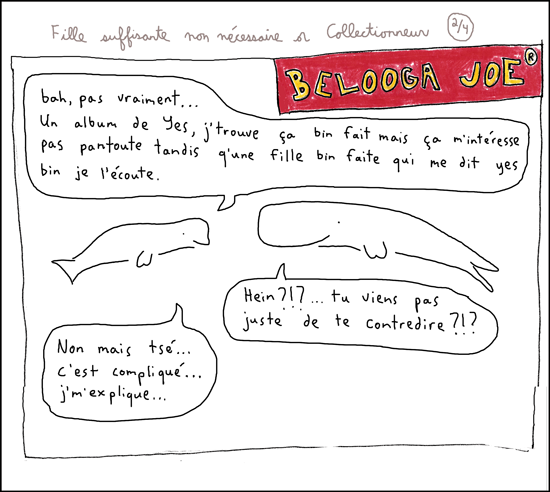 Fille suffisante non nécessaire or Collectionneur 2/4
BELOOGA JOE®
bah, pas vraiment...
Un album de Yes, j'trouve ça bin fait mais ça m'intéresse
pas pantoute tandis q'une fille bin faite qui me dit yes
bin je l'écoute.
Hein?!?... tu viens pas
juste de te contredire?!?
Non mais tsé...
c'est compliqué...
j'm'explique...